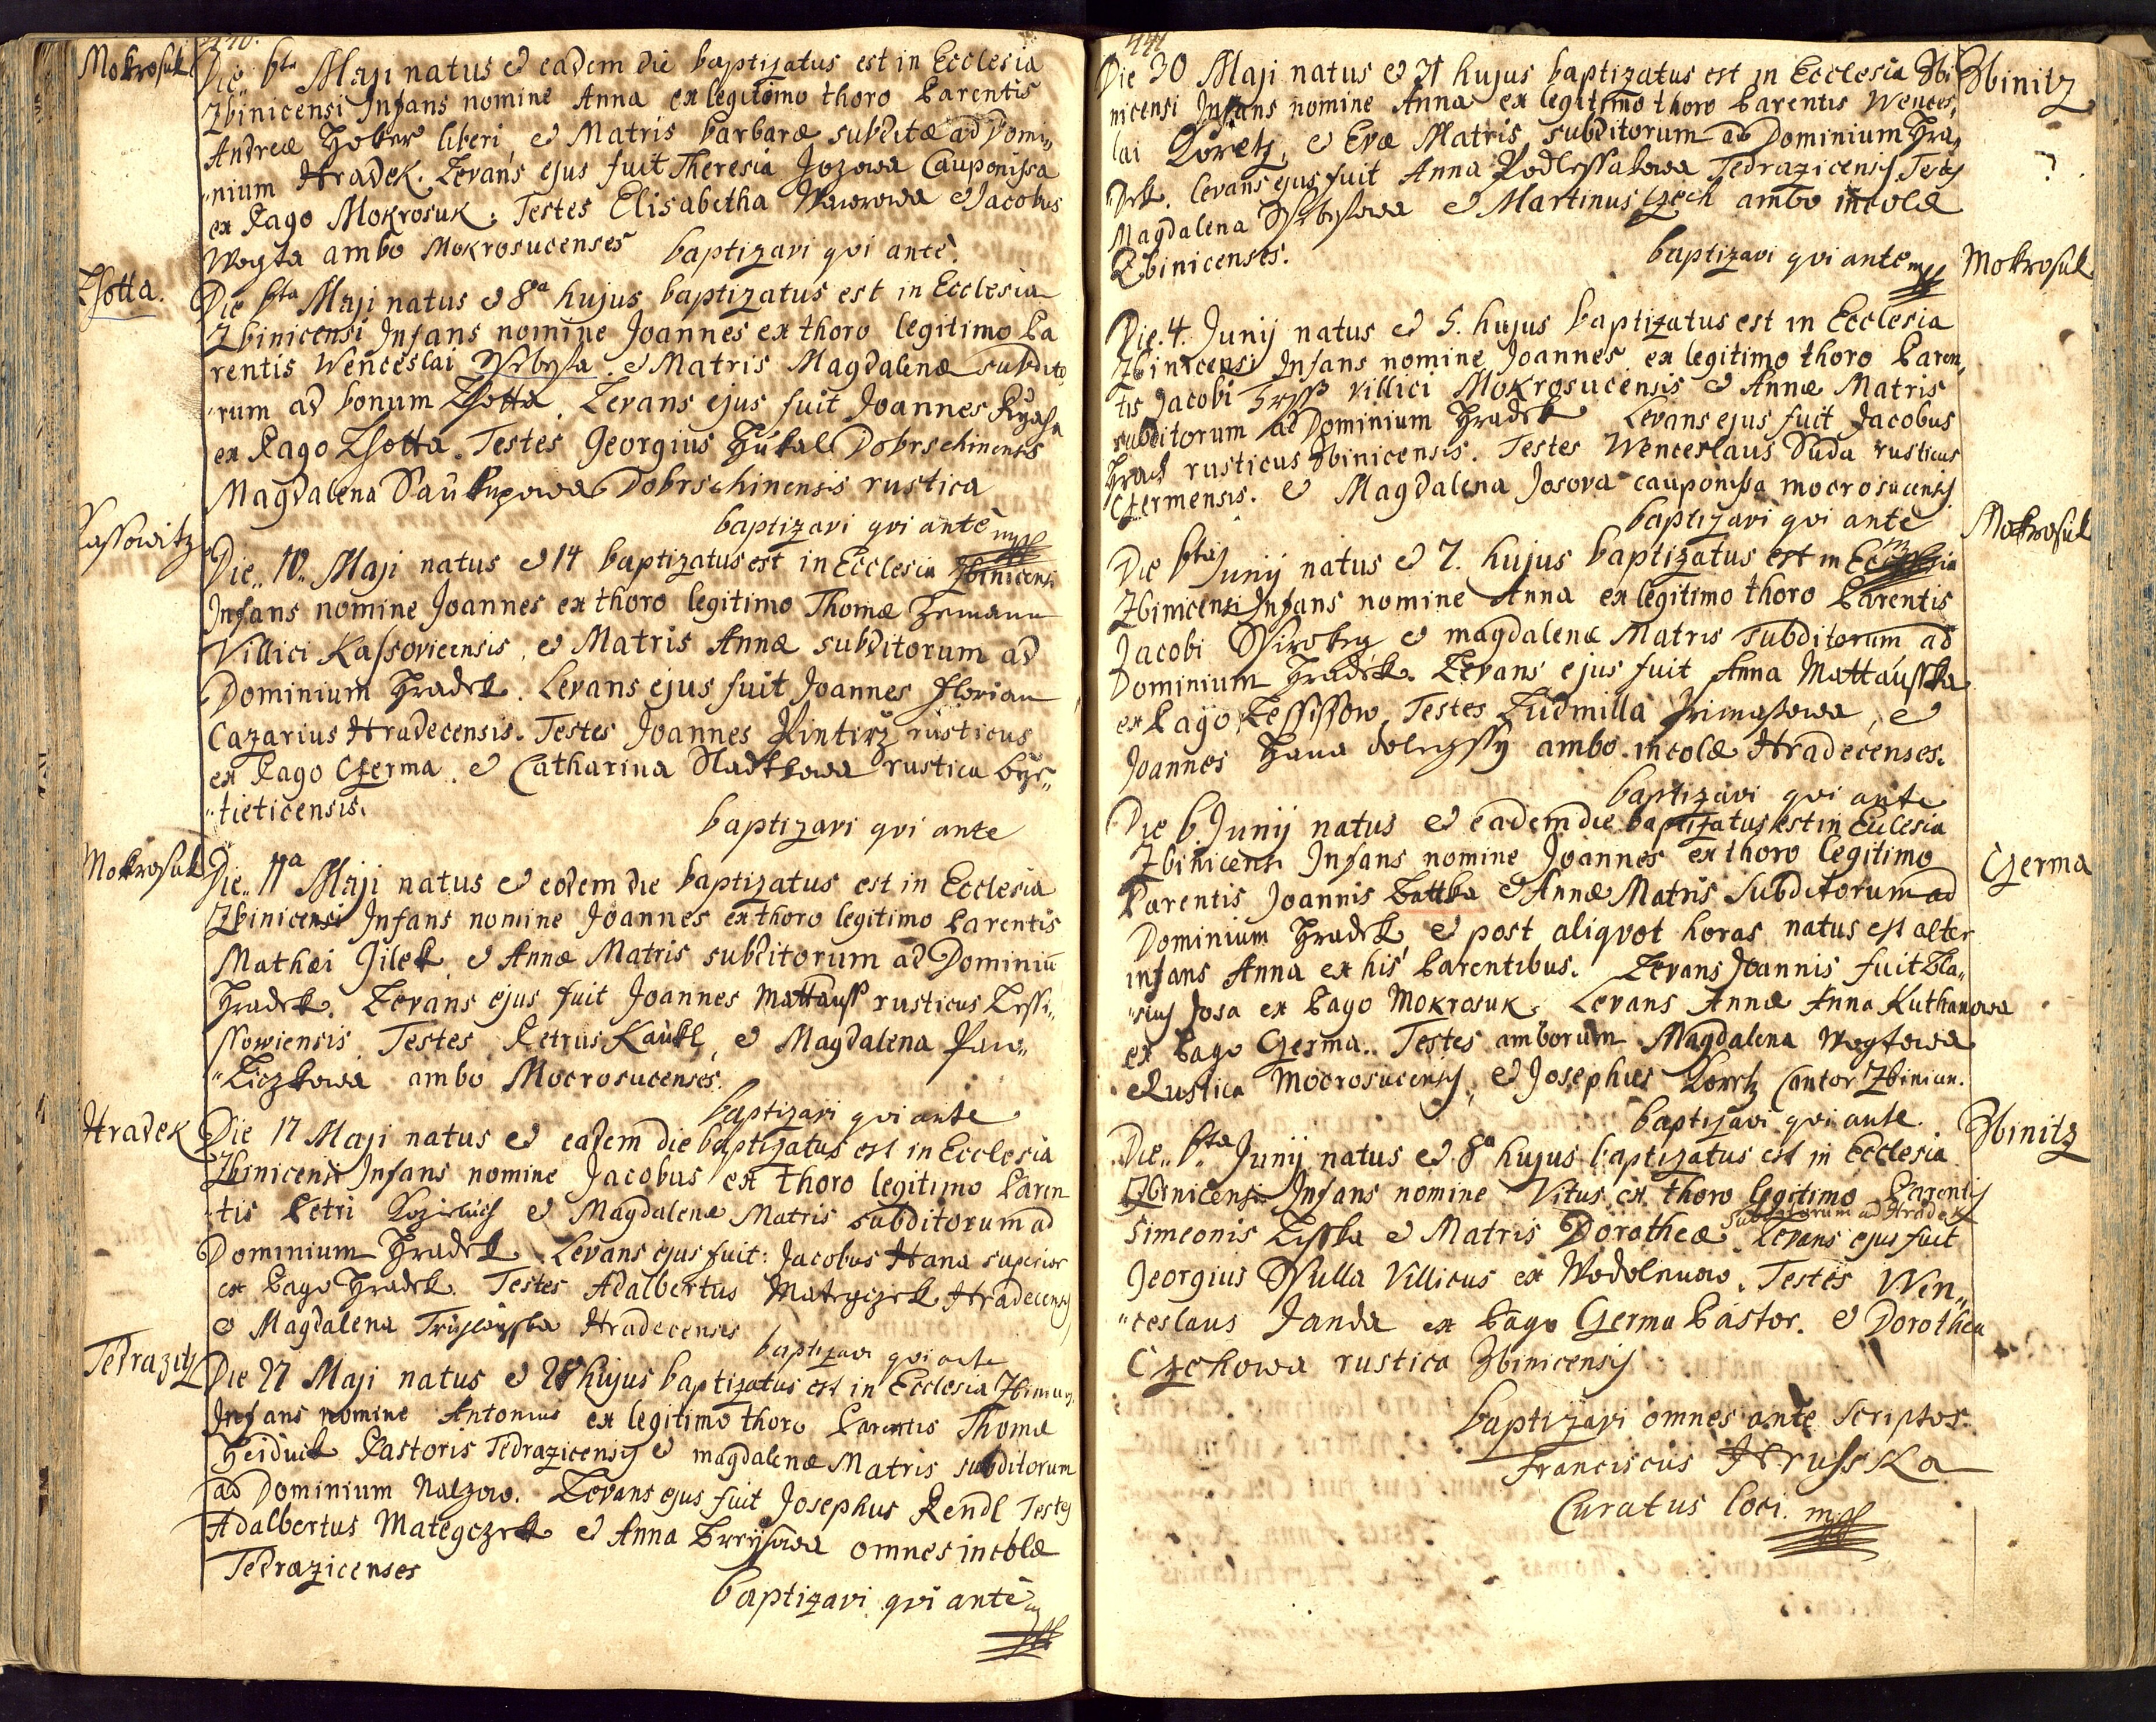 440.
Mokrosuk
Die 6ta Maji natus et eadem die baptizatus est in Ecclesia
Zbinicensi Infans nomine Anna ex legitimo thoro Parentis
Andreæ Hoker liberi, et Matris barbaræ subditæ ad Domi„
„nium Hradek. Levans ejus fuit Theresia Jozowa Cauponissa
ex Pago Mokrosuk. Testes Elisabetha Wawrowa et Jacobus
Wogta ambo Mokrosucenses baptizavi qvi ante.
Lhotta.
Die 6ta Maji natus et 8a hujus baptizatus est in Ecclesia
Zbinicensi Infans nomine Joannes ex thoro legitimo Pa
rentis Wenceslai Srbyſa et Matris Magdalenæ subdito
„rum ad bonum Lhotta. Levans ejus fuit Joannes
ex Pago Lhotta. Testes Georgius Hukal Dobrschinensis
Magdalena Saukupowa Dobrschinensis rustica
baptizavi qvi ante mpp
Kassowitz
Die„ 10„ Maji natus et 14 baptizatus est in Ecclesia Zbinicensi
Infans nomine Joannes ex thoro legitimo Thomæ Zemann
Villici Kassovicensis, et Matris Annæ subditorum ad
Dominium Hradek. Levans ejus fuit Joannes Florian
Cazarius Hradecensis. Testes Joannes Pintirz rusticus
ex Pago Czerma„ et Catharina Sladkowa rustica byſ„
„tieticensis.
baptizavi qvi ante
Mokrosuk
Die„ 11a Maji natus et eodem die baptizatus est in Ecclesia
Zbinicensi Infans nomine Joannes ex thoro legitimo Parentis
Mathæi Jilek, et Annæ Matris subditorum ad Dominiu
Hradek. Levans ejus fuit Joannes Mattauss rusticus Lessi„
ssowiensis. Testes Petrus Kaukl, et Magdalena Paw„
„Liczkowa ambo Mocrosucenses.
baptizavi qvi ante
Hradek
Die 17 Maji natus et eadem die baptizatus est in Ecclesia
Zbinicensi Infans nomine Jacobus ex thoro legitimo Paren
„tis Petri et Magdalenæ Matris subditorum ad
Dominium Hradek. Levans ejus fuit: Jacobus Hana superior
ex Pago Hradek. Testes Adalbertus Mategczek Hradecensis
et Magdalena Hradecensis
baptizavi qvi ante
Tedrazitz
Die 27 Maji natus et 28 hujus baptizatus est in Ecclesia
Infans nomine Antonius ex legitimo thoro Parentis Thomæ
Heiduck Pastoris Tedrazicensis et magdalenæ Matris subditorum
ad Dominium Nalzow. Levans ejus fuit Josephus Rendl Testes
Adalbertus Mategczek et Anna omnes incolæ
Tedrazicenses
baptizavi qvi ante
441
Die 30 Maji natus et 31 hujus baptizatus est in Ecclesia Zbi
Zbinitz
nicensi Infans nomine Anna ex legitimo thoro Parentis Wences„
lai Koretz, et Evæ Matris, subditorum ad Dominium Hra„
dek. Levans ejus fuit Anna Podlessakowa Tedrazicensis Testes
Magdalena et Martinus Czech ambo incolæ
Zbinicenses.
baptizavi qvi ante mpp
Mokrosuk
Die. 4. Junij natus et 5. hujus baptizatus est in Ecclesia
Zbinicensi Infans nomine Joannes ex legitimo thoro Paren„
tis Jacobi villici Mokrosucensis et Annæ Matris
subditorum ad Dominium Hradek Levans ejus fuit Jacobus
Hrach rusticus Zbinicensis. Testes Wenceslaus Suda rusticus
Czermensis. et Magdalena Josova cauponissa mocrosucensis
baptizavi qvi ante
Mokrosuk
Die 6ta Junij natus et 7. hujus baptizatus est in Ecclesia
Zbinicensi Infans nomine Anna ex legitimo thoro Parentis
Jacobi Siroky et magdalenæ Matris subditorum ad
Dominium Hradek. Levans ejus fuit Anna Mattausska
ex Pago Lessissow. Testes Ludmilla, et
Joannes Hana dolegssy ambo incolæ Hradecenses.
baptizavi qvi ante
Czerma
Die 6 Junij natus et eadem die baptizatus est in Ecclesia
Zbinicensi Infans nomine Joannes ex thoro legitimo
Parentis Joannis Lattka et Annæ Matris subditorum ad
Dominium Hradek, et post aliqvot horas natus est alter
infans Anna ex his Parentibus. Levans Joannis fuit Bla„
„sius Josa ex Pago Mokrosuk. Levans Annæ Anna Kuthanowa
ex Pago Czerma„ Testes amborum Magdalena Wogtowa
Rustica Mocrosucensis, et Josephus Koretz Cantor Zbinicen.
baptizavi qvi ante.
Zbinitz
Die„ 6ta Junij natus et 8a hujus baptizatus est in Ecclesia
Zbinicensi Infans nomine Vitus ex thoro legitimo Parentis
subditorum ad Hradek
Simeonis Lisska et Matris Dorotheæ. Levans ejus fuit
Georgius Villicus ex Wodolnuow. Testes Wen„
„ceslaus Janda ex Pago Czerma Pastor. et Dorothea
Czechowa rustica Zbinicensis
baptizavi omnes ante scriptos
Franciscus Hrusska
Curatus loci. mpp